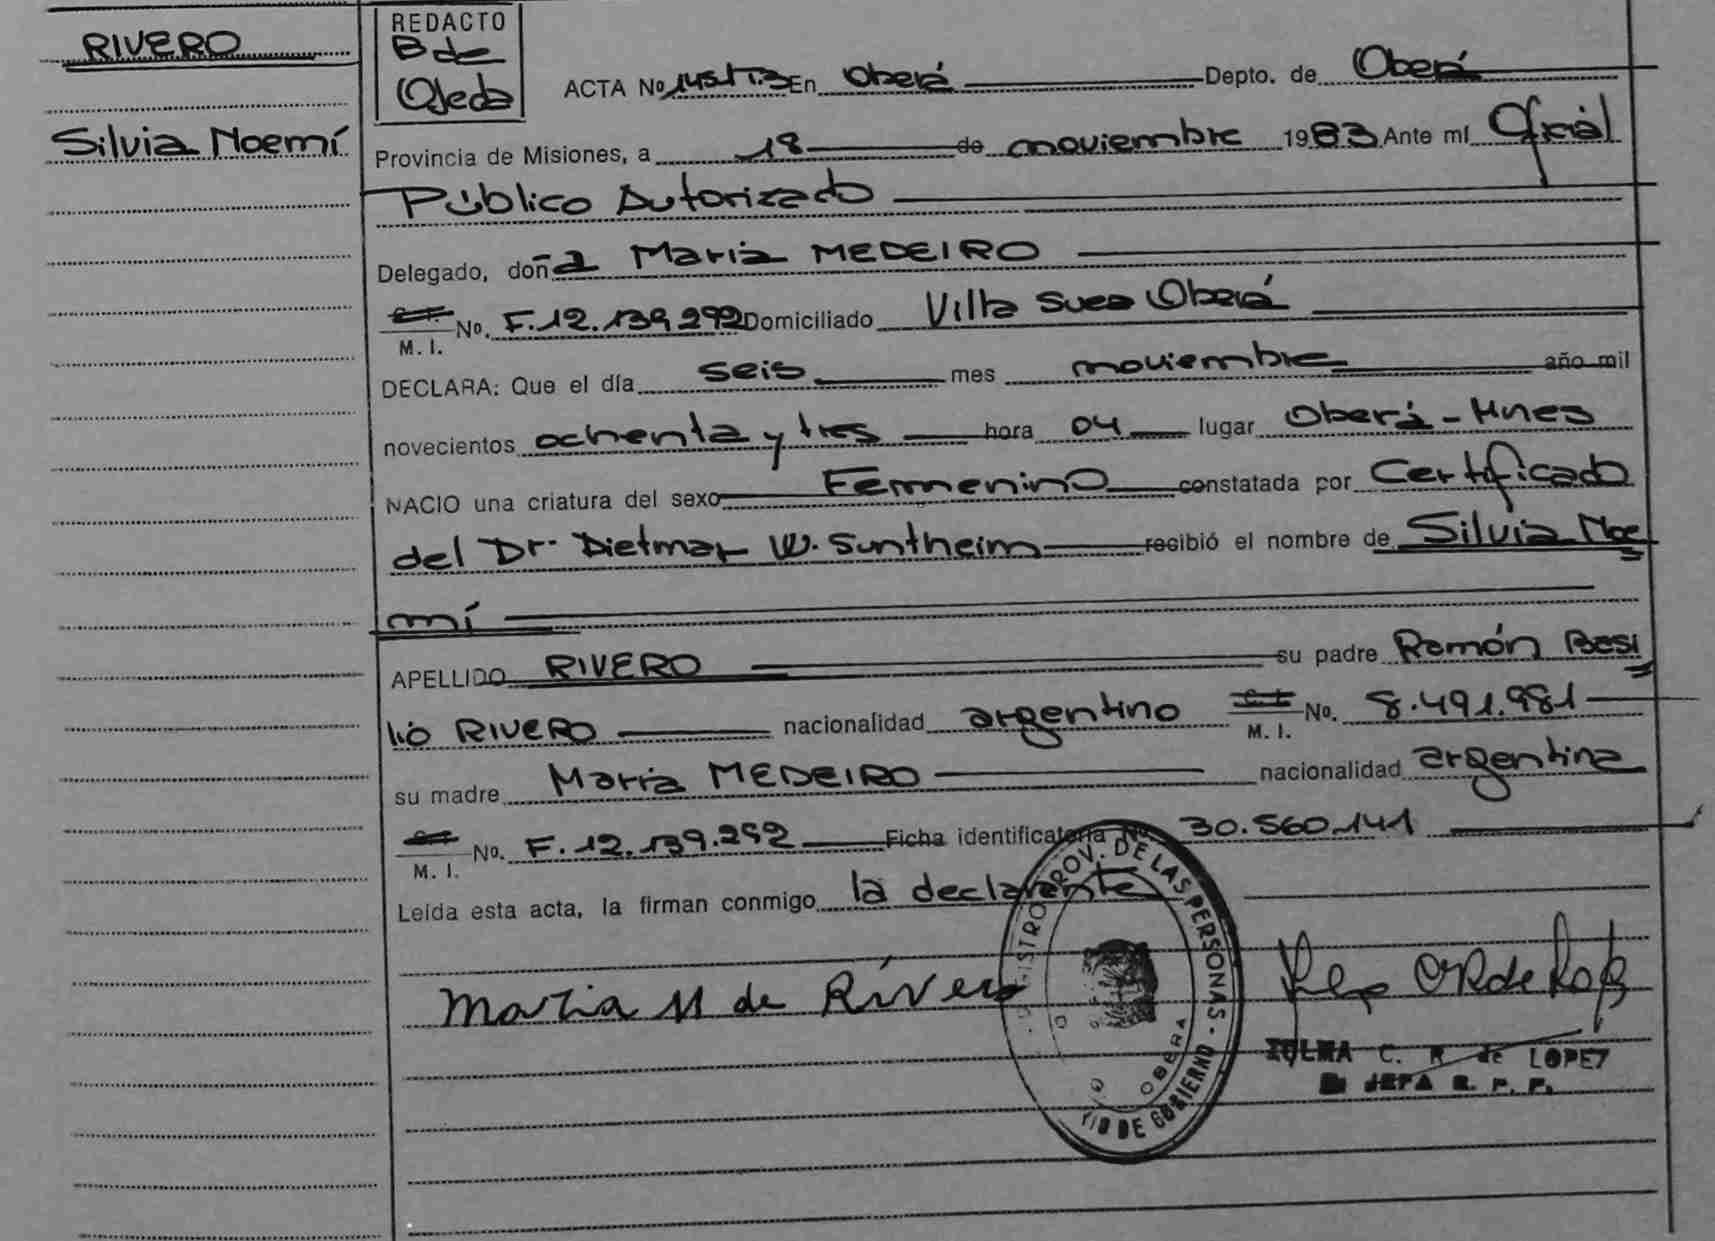 RIVERO
Silvia Noemí
REDACTO
B de
Ojeda
ACTA No En Oberá Depto. de Oberá
Provincia de Misiones, a 18 de noviembre 1983 Ante mí Oficial
Público Autorizado
Delegado, doña María MEDEIRO
C.I. M. I. No. F.12.139.292 Domiciliado Villa Suea Oberá
DECLARA: Que el día seis mes noviembre año mil
novecientos ochenta y tres hora 04 lugar Oberá - Mnes
NACIO una criatura del sexo Femenino constatada por Certificado
del Dr. Dietmar W. Suntheim recibió el nombre de Silvia Noe
mí
APELLIDO RIVERO su padre Ramón Basi
lio RIVERO nacionalidad argentino C.I. M. I. No. 8.491.981
su madre María MEDEIRO nacionalidad argentina
M. I. No. F.12.139.292 Ficha identificatoria No. 30.560.141
Leída esta acta, la firman conmigo la declarante
Maria M de Rivero
REGISTRO PROV. DE LAS PERSONAS - DE GOBIERNO
OBERA
ZULMA C. R de LOPEZ
JEFA R. P. P.